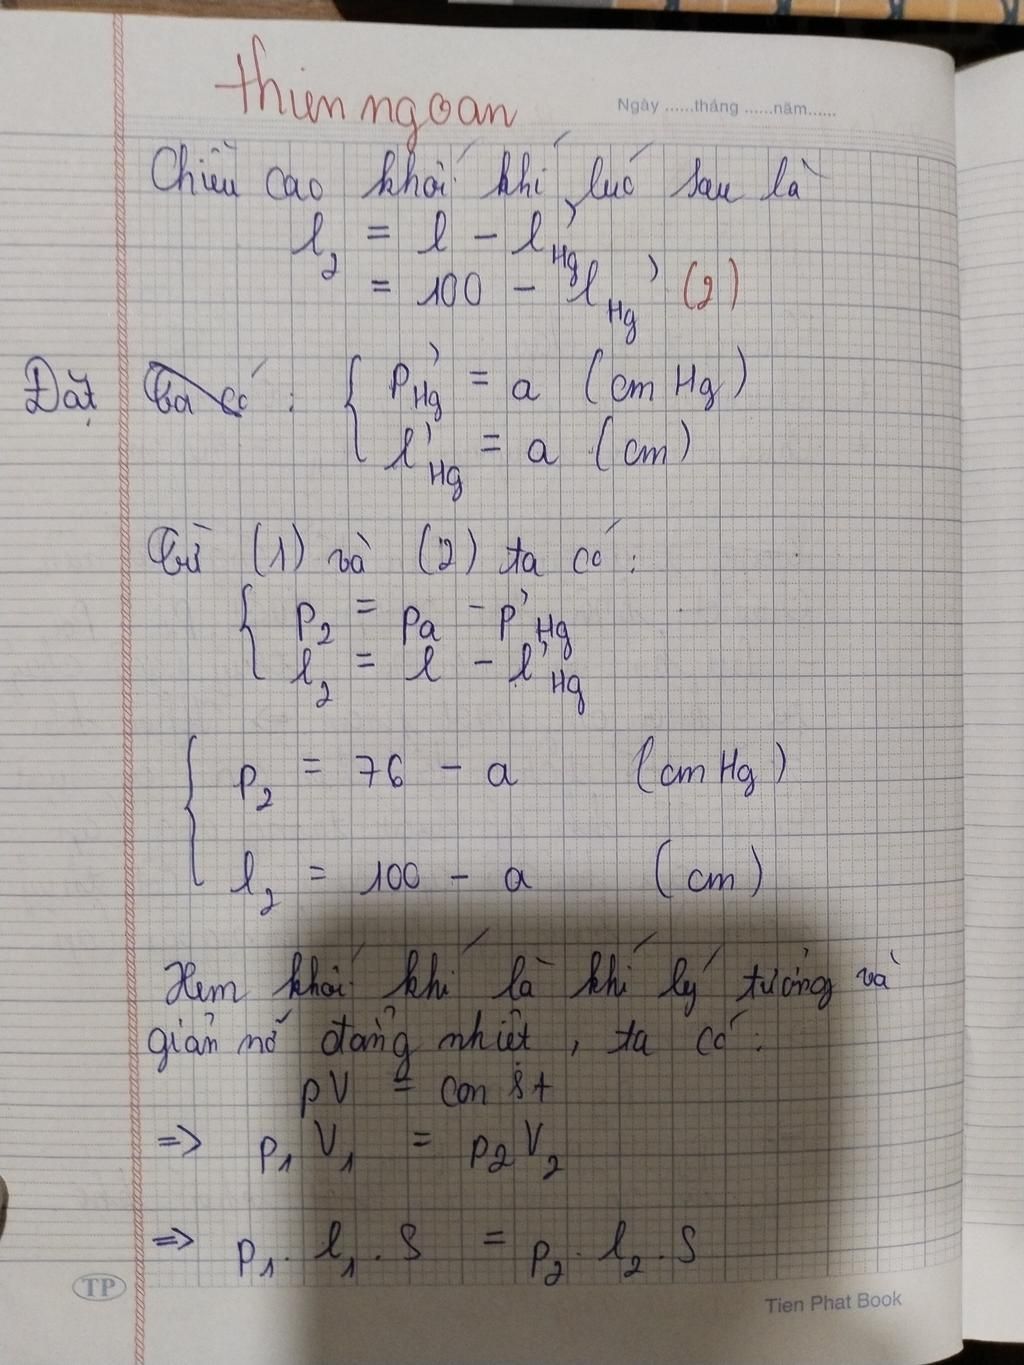 thien ngoan
Ngày ......tháng ......năm......
Chiều cao khối khí lúc sau là
l₂ = l - l'Hg
= 100 - l'Hg (2)
Đặt Ta có : { p'Hg = a (cm Hg)
l'Hg = a (cm)
Từ (1) và (2) ta có :
{ p₂ = pa - p'Hg
l₂ = l - l'Hg
{ p₂ = 76 - a (cm Hg)
l₂ = 100 - a (cm)
Xem khối khí là khí lý tưởng và
giản nở đẳng nhiệt , ta có :
pV = const
=> p₁ V₁ = p₂ V₂
=> p₁ . l₁ . S = p₂ . l₂ . S
TP
Tien Phat Book